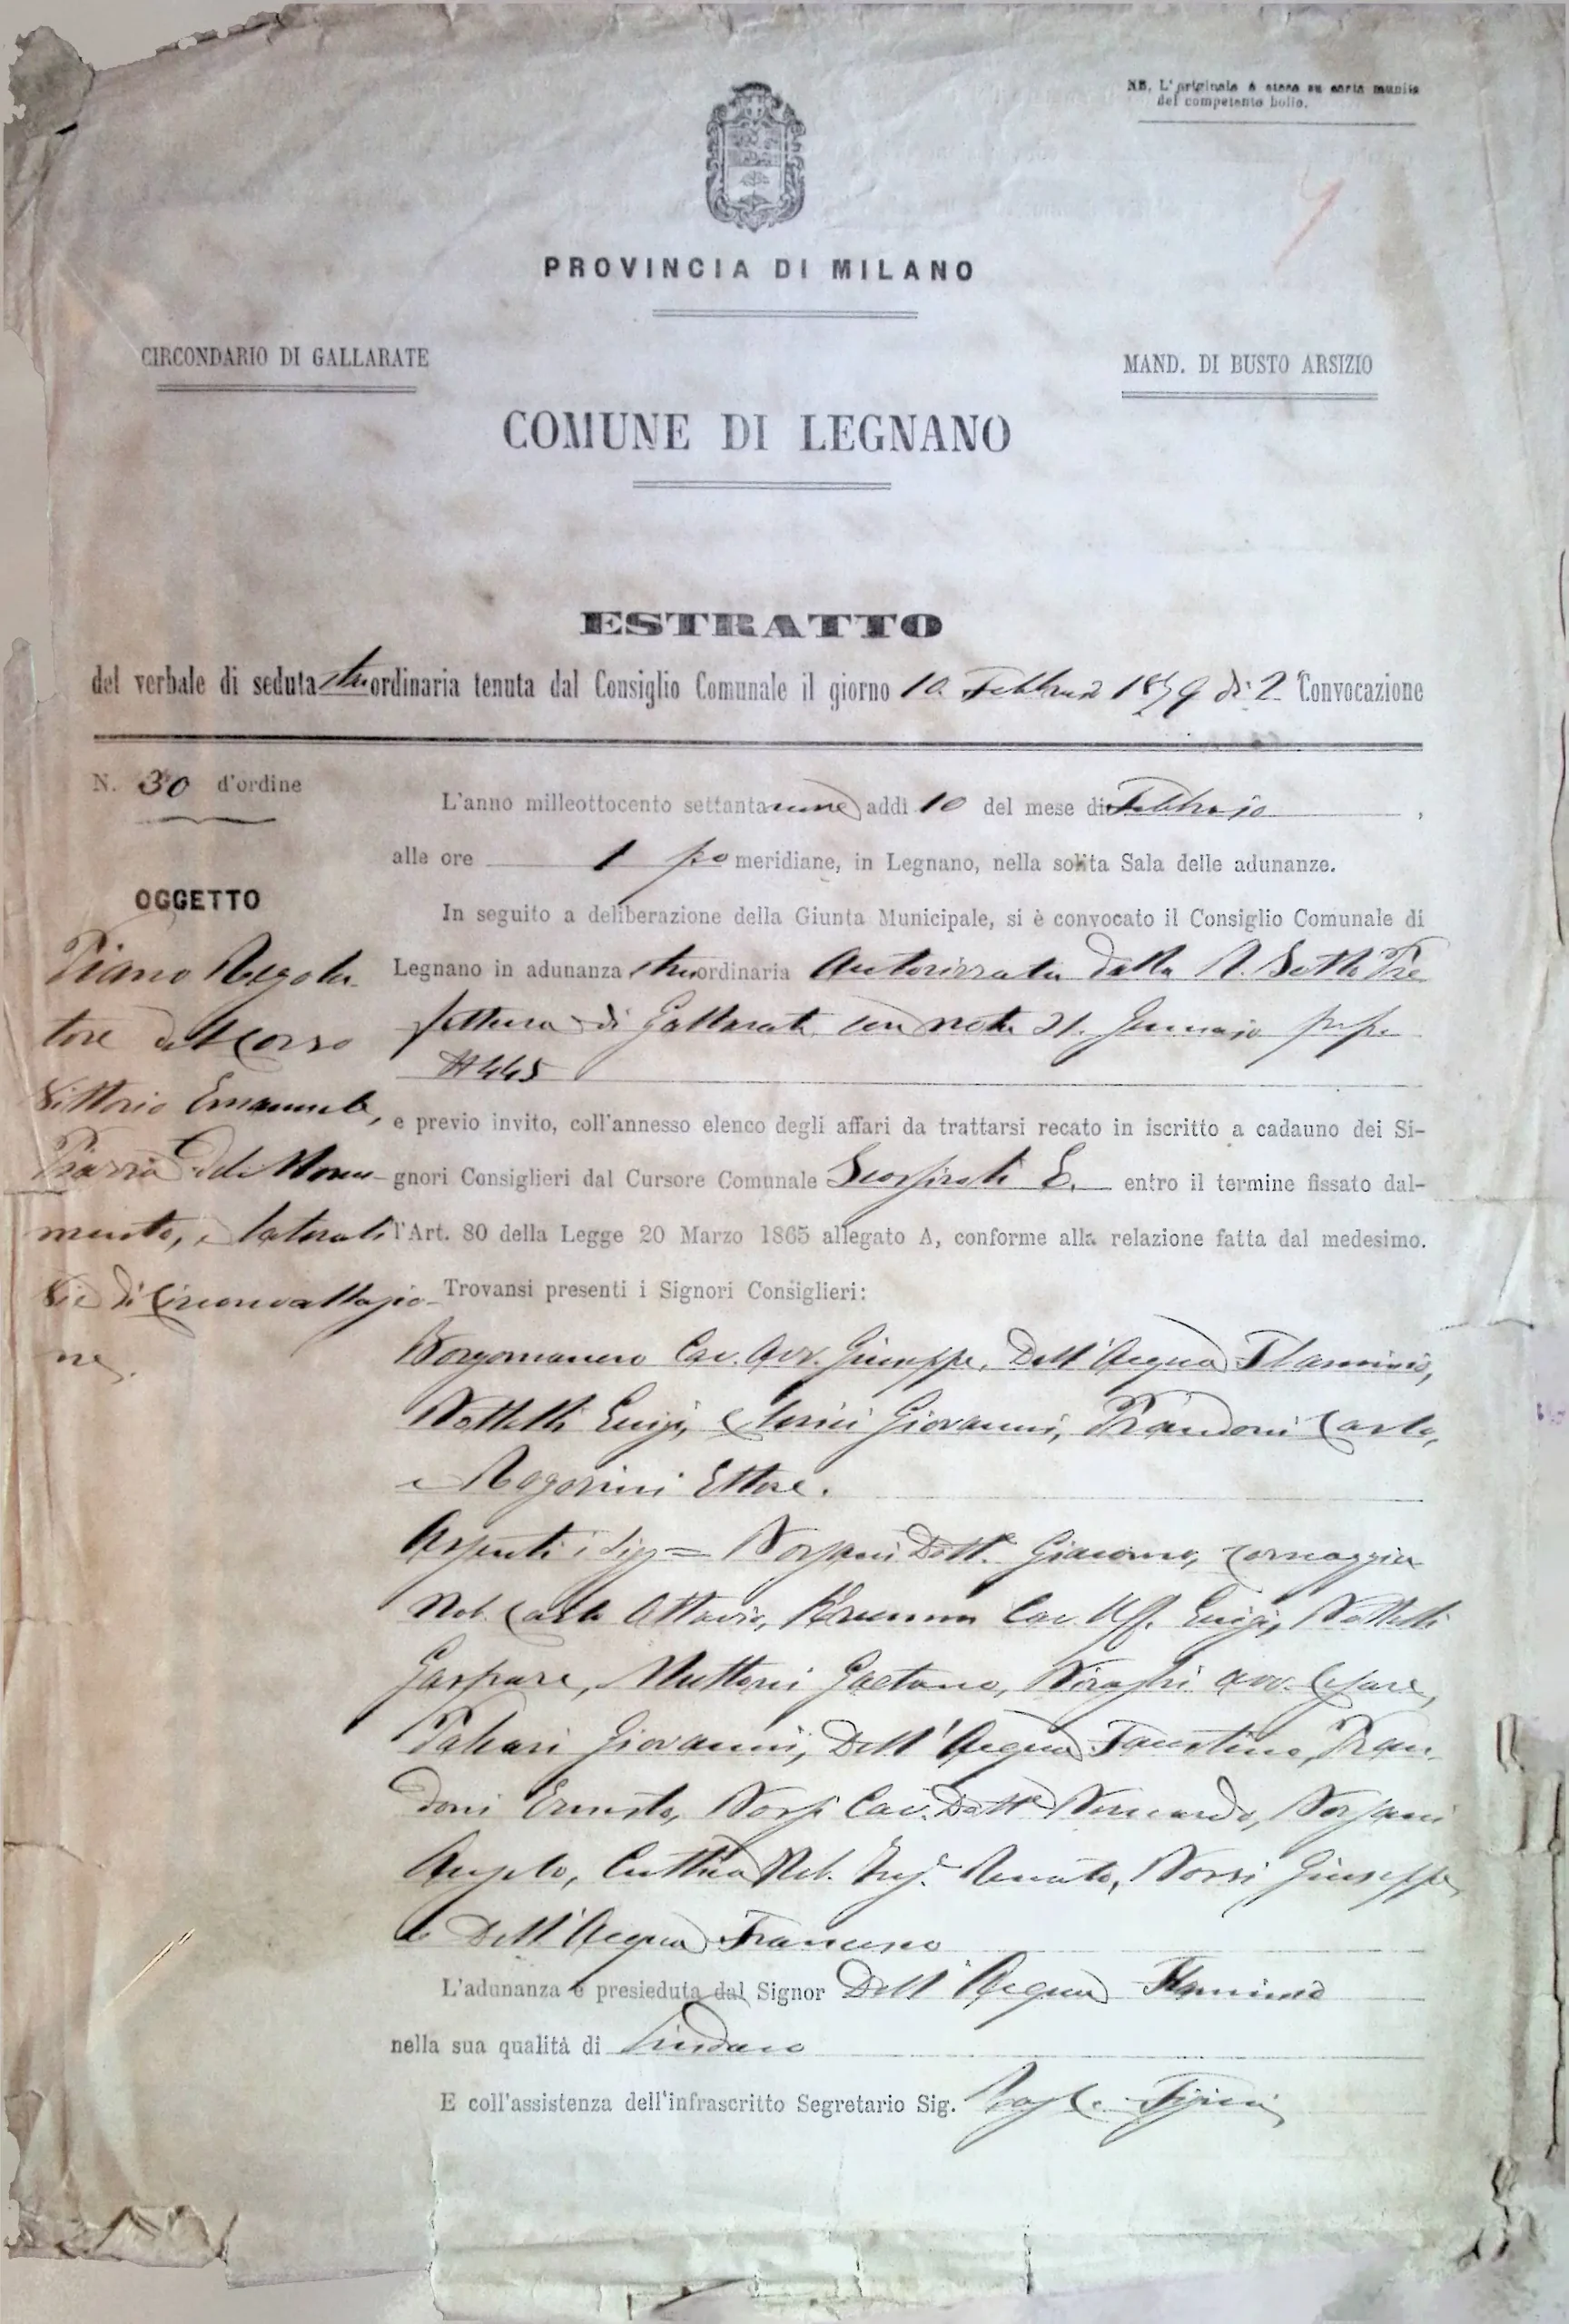 NB. L'originale è steso su carta munita
del competente bollo.
PROVINCIA DI MILANO
CIRCONDARIO DI GALLARATE
MAND. DI BUSTO ARSIZIO
COMUNE DI LEGNANO
ESTRATTO
del verbale di seduta straordinaria tenuta dal Consiglio Comunale il giorno 10 Febbraio 1879 di 2 Convocazione
N. 30 d'ordine
OGGETTO
Piano Regola-
tore del Corso
Vittorio Emanuele,
Piazza del Monu-
mento, e laterali
Vie di Circonvallazio-
ne.
L'anno milleottocento settantanove addi 10 del mese di Febbrajo,
alle ore 1 po meridiane, in Legnano, nella solita Sala delle adunanze.
In seguito a deliberazione della Giunta Municipale, si è convocato il Consiglio Comunale di
Legnano in adunanza straordinaria Autorizzata dalla R. Sotto Pre
fettura di Gallarate con nota 31. Gennajo p.p.
N 445
e previo invito, coll'annesso elenco degli affari da trattarsi recato in iscritto a cadauno dei Si-
gnori Consiglieri dal Cursore Comunale E. entro il termine fissato dal-
l'Art. 80 della Legge 20 Marzo 1865 allegato A, conforme alla relazione fatta dal medesimo.
Trovansi presenti i Signori Consiglieri:
Borgomanero Cav. Avv. Giuseppe, Dell'Acqua Flaminio,
Luigi, Clerici Giovanni, Prandoni Carlo,
e Rogorini Ettore.
Assenti i Sigg = Bossani Dott. Giacomo, Cornaggia
Nob. Carlo Ottavio, Krumm Cav. Uff. Luigi,
Gaspare, Muttoni Gaetano, Biraghi avv. Cesare,
Giovanni, Dell'Acqua Faustino, Pran-
doni Ernesto, Cav. Dott. Bernardo, Bossani
Angelo, Cuttica Nob. Ing. Renato, Bossi Giuseppe
e Dell'Acqua Francesco
L'adunanza è presieduta dal Signor Dell'Acqua Flaminio
nella sua qualità di Sindaco
E coll'assistenza dell'infrascritto Segretario Sig.